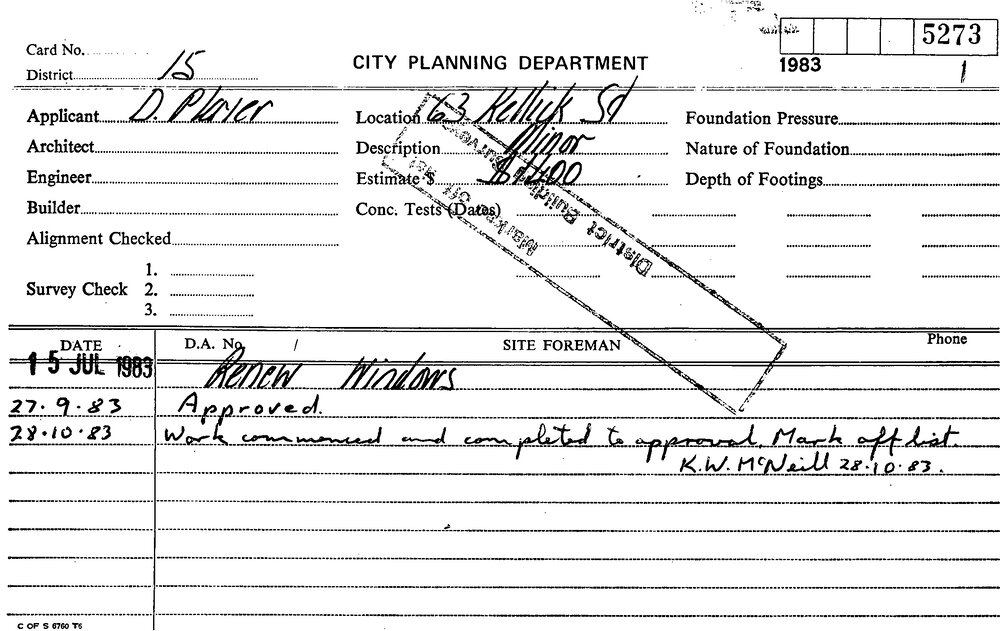 5273
Card No.
1983
1
District 15
CITY PLANNING DEPARTMENT
Applicant D. Player
Location 63 Kellick St
Foundation Pressure
Architect
Description Minor
Nature of Foundation
Engineer
Estimate $
Depth of Footings
Builder
Conc. Tests (Dates)
Alignment Checked
1.
Survey Check 2.
3.
Marked Off
District Building Surveyor
DATE
D.A. No. /
SITE FOREMAN
Phone
15 JUL 1983
Renew Windows
27.9.83 Approved.
28.10.83 Work commenced and completed to approval. Mark off list.
K.W. McNeill 28.10.83.
C OF S 6760 T6